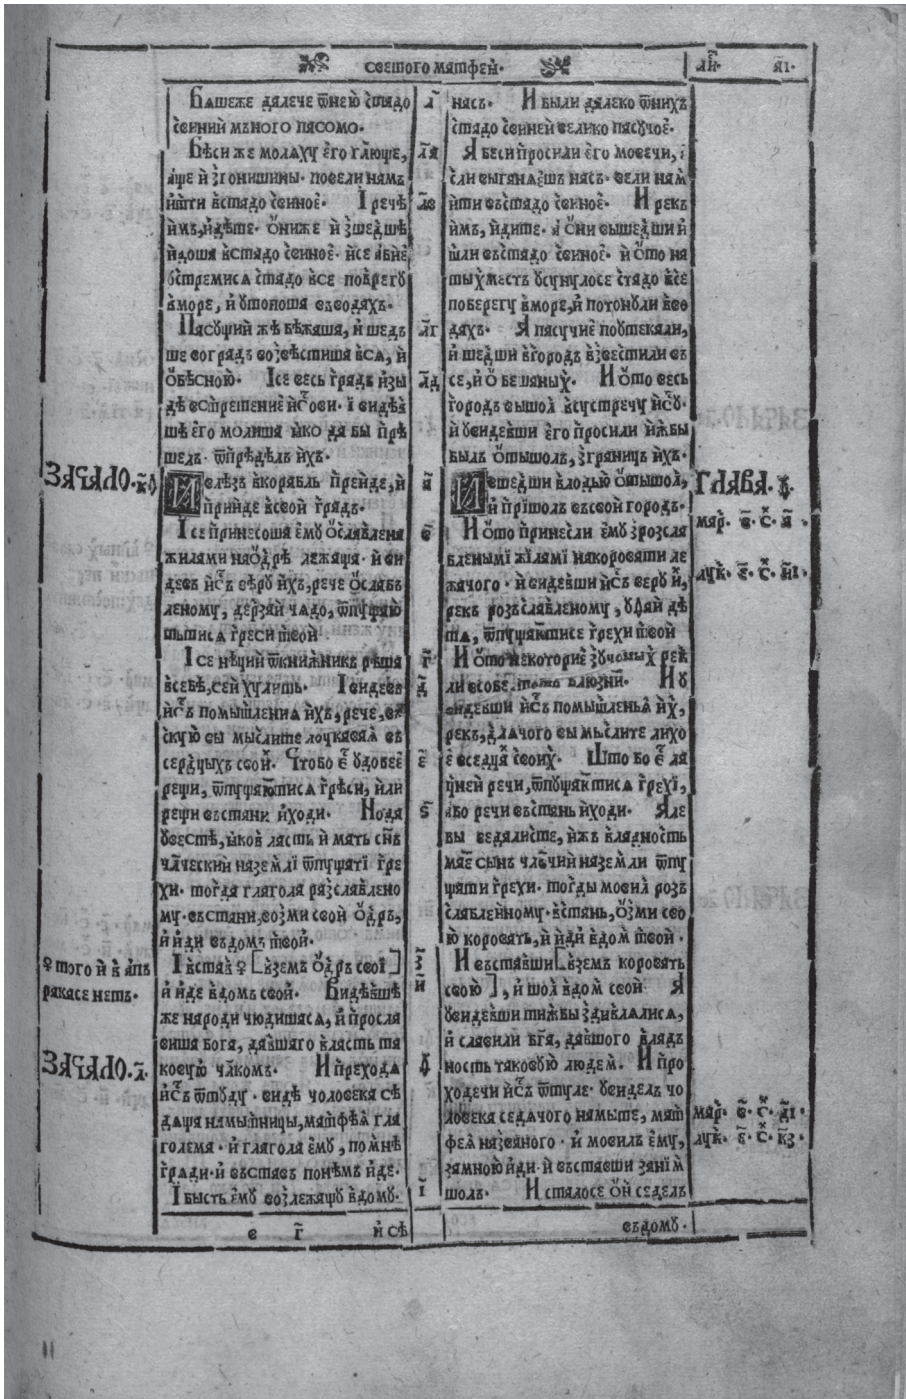 СВЕТОГО МАТФЕꙖ·
л҃и·
а҃і·
Бꙗшеже далече ѿнею стадо
свиний мъного пасомо·
Бѣси же молꙗху его гл҃юще,
аще изгониши ны· повели намъ
ити встадо свиное· І рече
имъ, идѣте· ѡниже изшедше
идоша встадо свиное· исе абие
устремисꙗ стадо все побрегу
вморе, и утопоша въводахъ·
Пасущий же бѣжаша, и шедъ
ше воградъ возвѣстиша всꙗ, и
ѡбѣсною· Ісе весь градъ изы
де встретение іс҃ови· і видѣв
ше его молиша ꙗко да бы пре
шелъ· ѿпредѣлъ ихъ·
ЗАЧАЛО·к҃ѳ
Ивлезъ вкорабль прейде, и
прииде всвой градъ·
Ісе принесоша ему ѡслаблена
жилами наѡдрѣ лежаща· и ви
девъ іс҃ъ вѣру ихъ, рече ѡслабъ
леному, дерзай чадо, ѿпущаю
тьтисꙗ греси твои
Ісе нѣции ѿкнижникъ реша
всебѣ, сей хулишъ· І видевъ
іс҃ъ помышлениꙗ ихъ, рече, въ
скую вы мыслите лоукаваꙗ въ
сердцыхъ свои· Чтобо ес удобее
рещи, ѿпущаютисꙗ греси, или
рещи въстани и ходи· Нода
увесте, ꙗков ласть имать сн҃ъ
чл҃ческий наземли ѿпущати гре
хи· тогда глагола разслаблено
му· въстани, возми свой ѡдръ,
и иди въдомъ твой·
♀ того и в апъ
ракасе нетъ·
Івставъ ♀ [вземъ ѡдръ свои]
и иде вдомъ свой· Видѣвше
же народи чюдишасꙗ, и просла
виша бога, давшаго власть та
ЗАЧАЛО·л҃·
ковую чл҃комъ· И преходꙗ
іс҃ъ ѿтуду· виде чоловека се
дꙗща намытницы, матфеꙗ гла
голема· и глагола ему, помне
гради· и въставъ понемъ иде·
І бысть ему возлежащу вдому·
л҃
л҃а
л҃в
л҃г
л҃д
а҃
в҃
г҃
д҃
е҃
ѕ҃
з҃
и҃
ѳ҃
і҃
насъ· И были далеко ѿнихъ
стадо свиней велико пасучое·
А беси просили его мовечи, і
сли выганꙗешъ насъ· вели нам
ити въстадо свиное· И рекъ
имъ, идите· а ѡни вышедши и
шли въстадо свиное· и ѡто на
тыхместъ усунулосе стадо все
поберегу вморе, и потонули вво
дахъ· А пасучие поутекали,
и шедши вгородъ взвестили въ
се, и ѡ бешаныхъ· И ѡто весь
городъ вышол всустречу іс҃у·
и увидевши его просили ижбы
былъ ѡтышолъ, зграницъ ихъ·
ГЛАВА·ѳ҃·
Ившедши влодью ѡтышол,
и пришолъ въсвой городъ·
мар· в҃· с· а҃·
И ѡто принесли ему зрозсла
бленымі жіламі накоровати ле
лук· е҃· с· и҃і·
жачого· и видевши іс҃ъ веру их,
рекъ розъслабленому, уфай де
тꙗ, ѿпущаютисе грехи твои
И ѡто некоторие зученыхъ рек
ли всобе, тотъ блюзни· И у
видевши іс҃ъ помышленьꙗ их,
рекъ, длꙗчого вы мыслите лихо
е вседцахъ своих· Што бо ес ла
цней речи, ѿпущаютисꙗ грехі,
або речи въстань и ходи· Але
бы ведалисте, ижъ владность
мает сынъ члв҃чий наземли ѿпу
щати грехи· тогды мовил розъ
слабленному· встань, ѡзми сво
ю коровать, и иди вдом твой·
И въставши[вземъ коровать
свою], и шол вдом свой А
увидевши тижбы здивлꙗлисꙗ,
и славили бг҃а, давшого влад
ность таковую людем· И про
ходечи іс҃ъ ѿтуле· увиделъ чо
ловека седꙗчого намыте, мат
мар· в҃· с· д҃і·
феꙗ названого· и мовилъ ему,
лук· е҃· с· к҃з·
замною иди· и въставши заним
шолъ· И сталосе ѡн седелъ
в г҃ и се
въдому·
11